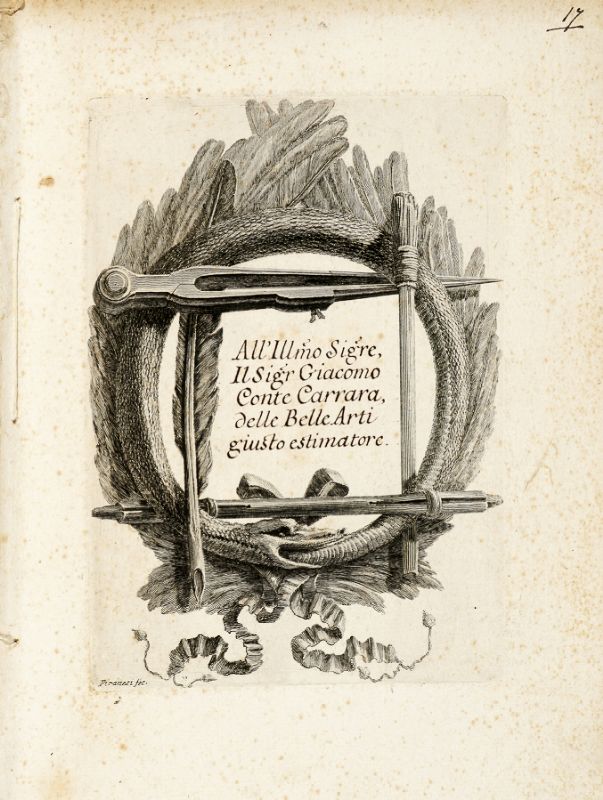 17
All'Illm̃o Sigr̃e,
Il Sigr̃ Giacomo
Conte Carrara,
delle Belle Arti
giusto estimatore.
Piranesi fec.